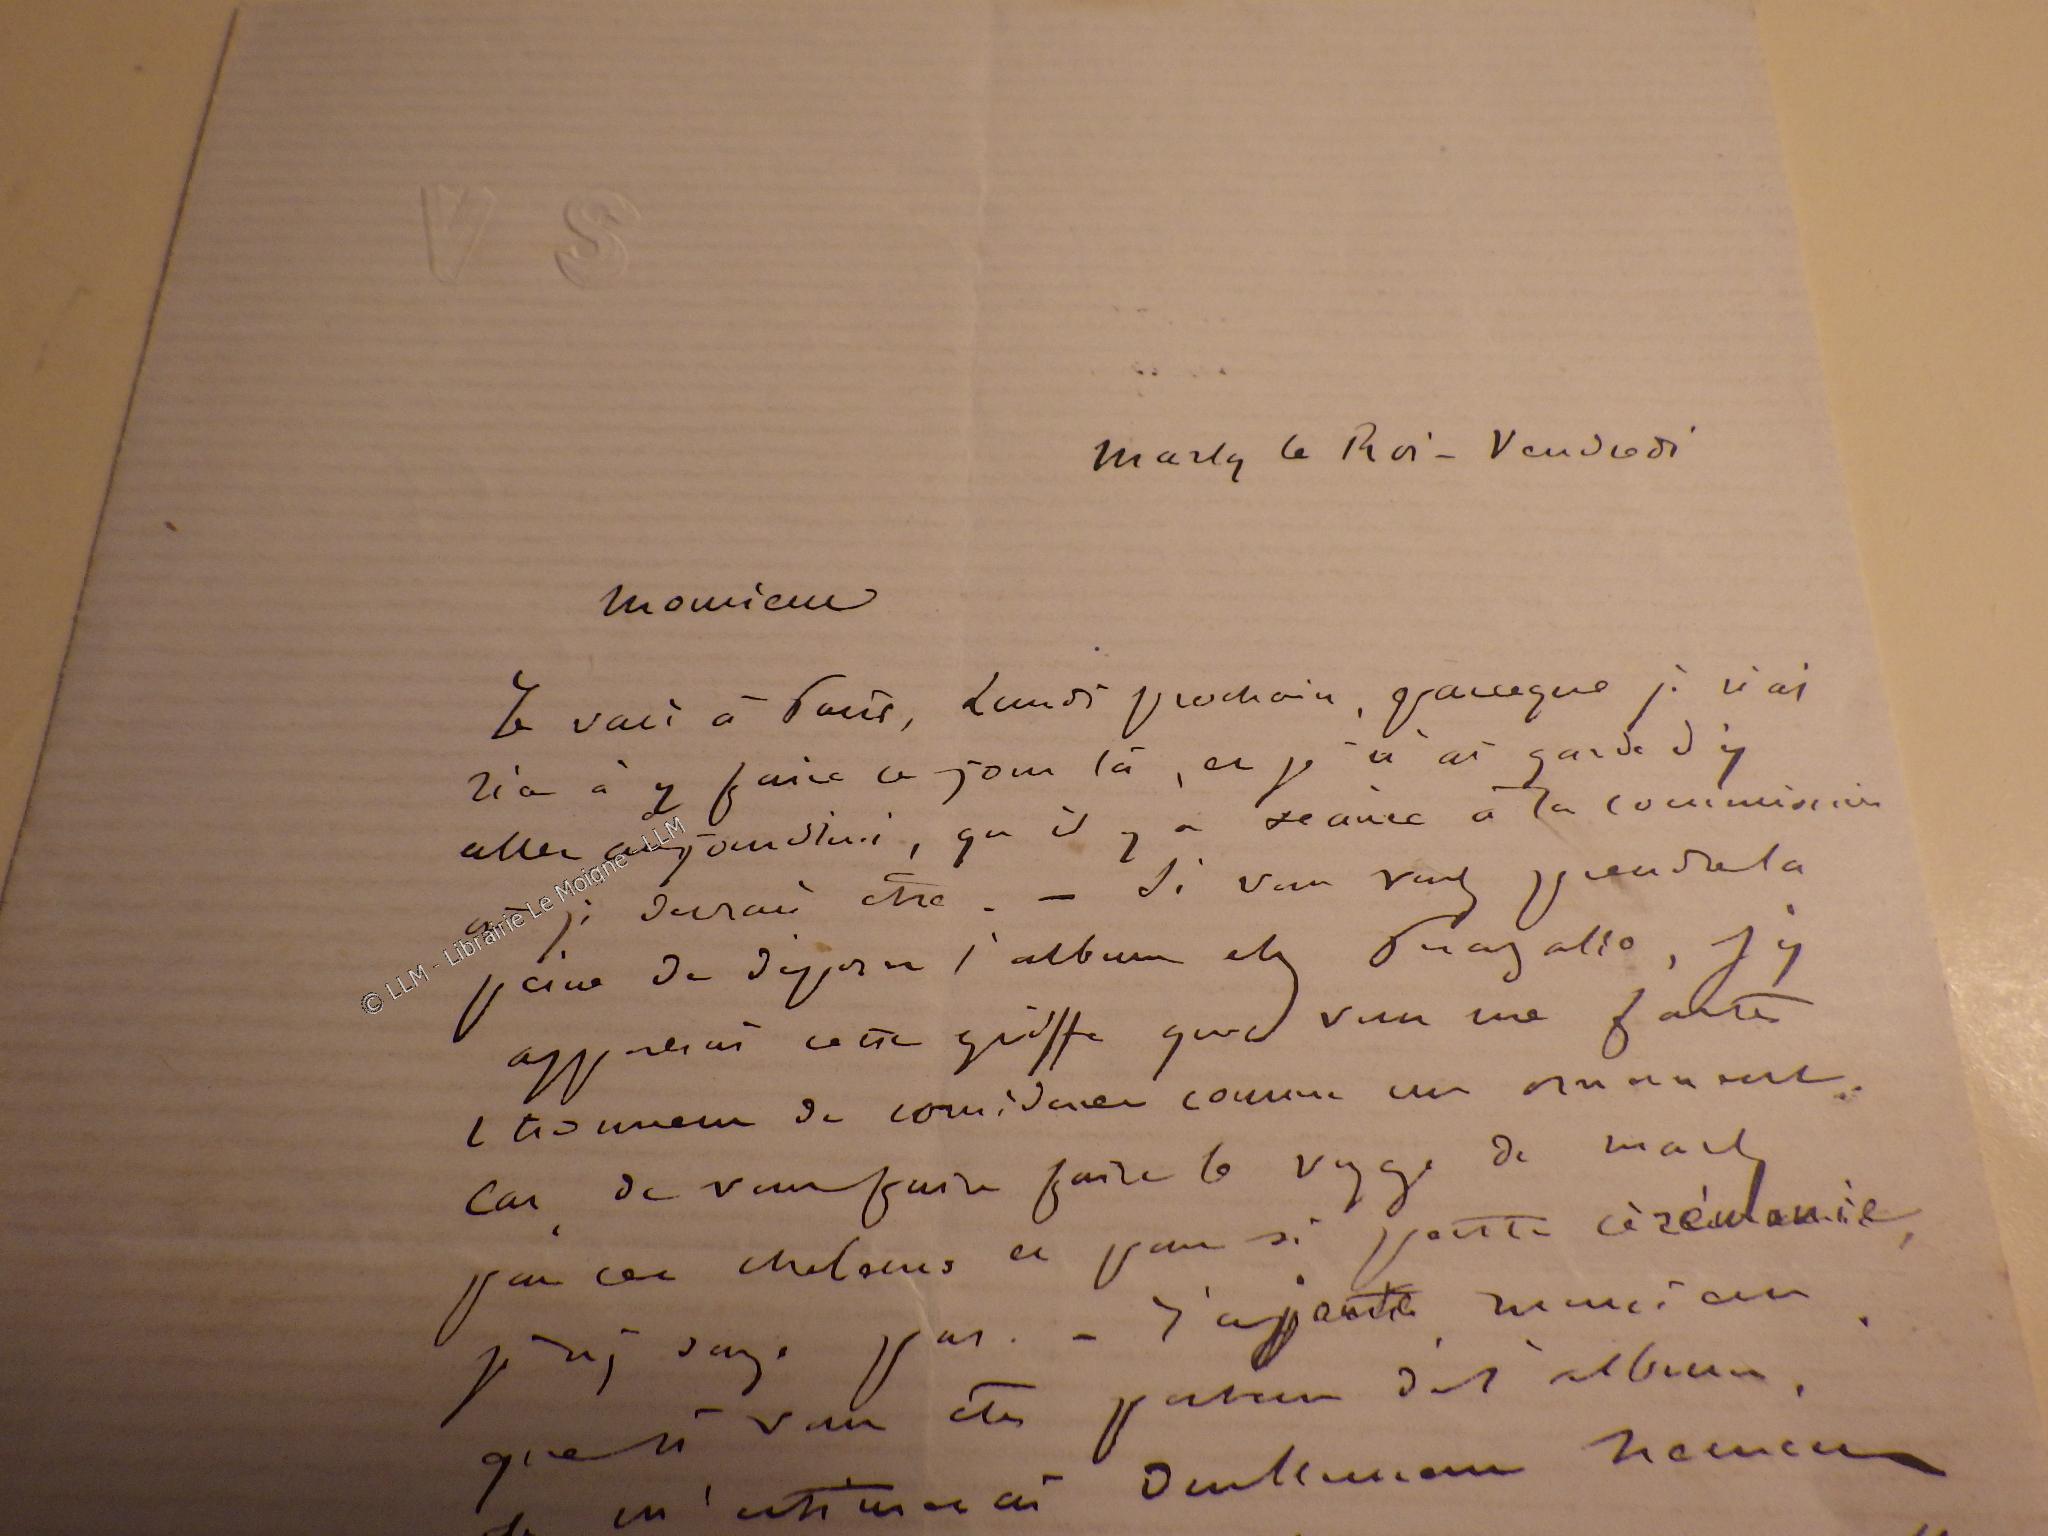 VS
Marly le Roi - Vendredi
Monsieur
Je vais à Paris, Lundi prochain, parceque je n'ai
rien à y faire ce jour là, et je n'ai garde d'y
aller aujourd'hui, qu'il y a séance à la commission
où je devrais être. - Si vous voulez prendre la
peine de déposer l'album chez Pragallo, j'y
apposerai cette griffe que vous me faites
l'honneur de considérer comme un ornement.
Car, de vous faire faire le voyage de Marly
par ces chaleurs et pour si petite cérémonie,
je n'y songe pas. - J'ajoute, monsieur
que si vous êtes porteur de l'album,
je m'estimerai doublement heureux
© LLM - Librairie Le Moigne - LLM